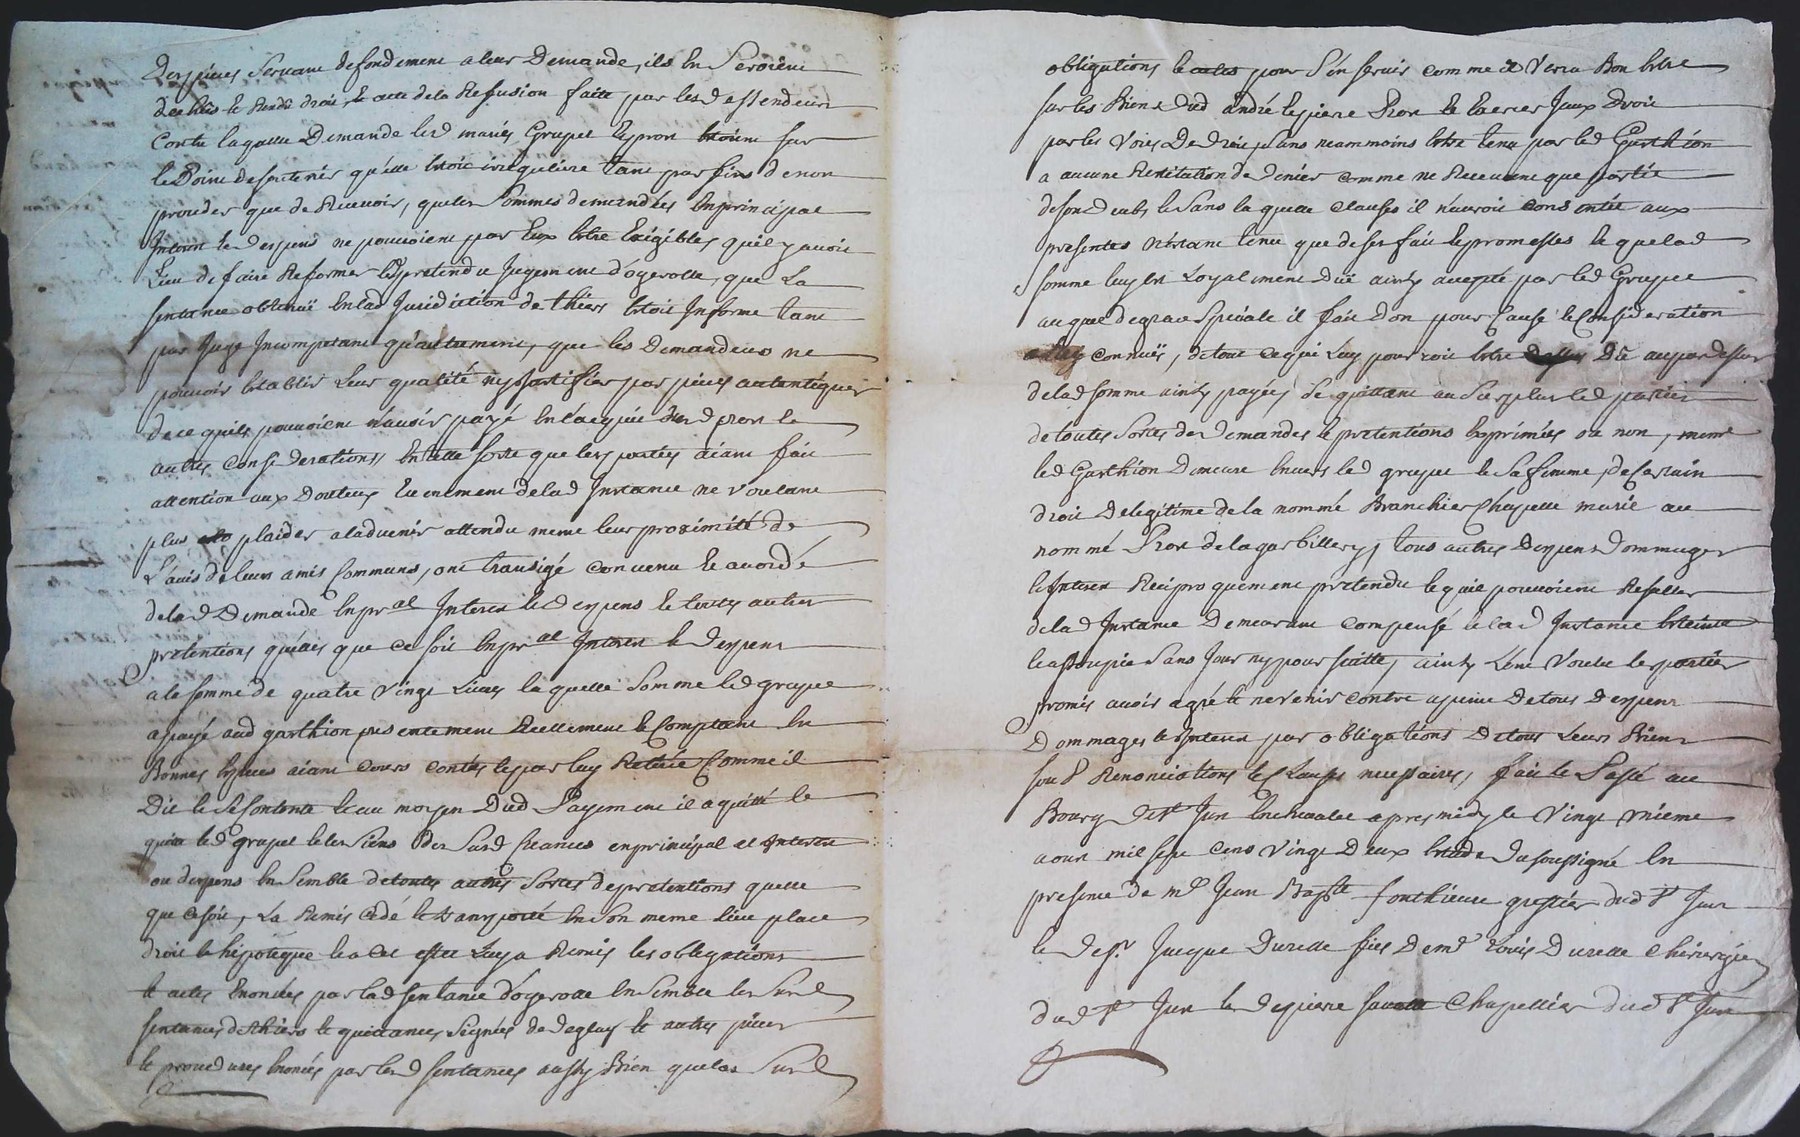 Despieces Servant de fondement a leur Demande, ils en Seroient
le acte de la Refusion faite par lesd deffendeurs
Contre laquelle Demande led mariés Grupel
le Point de soutenir qu'elle etoit irreguliere tant par fins de non
proceder que de Recevoir, que les Sommes demandées en principal
Interest et despens ne pouvoient par Eux Estre Exigibles qu'il y avoit
Lieu de faire Reformer led pretendu Jugement d'ogerolle, que La
sentence obtenuë en lad Jurisdiction de thiers Etoit Informe tant
par Juge Incompetant qu'autrement, que les Demandeurs ne
pouvoir Etablir Leur qualité ny Justiffier par pieces autentiques
de ce quils pouvoient n'avoir payé En l'acquit dud pron et
autres Considerations, En telle sorte que les parties aiant fait
attention aux Douteux Evenement de lad Instance ne Voulant
plus plaider a ladvenir attendu meme leur proximité de
L'avis de leurs amis Communs, ont transigé convenu et acordé
de lad Demande en pr.al Interest et Despens et toutes autres
pretentions qu'elles que ce soit en pr.al Interest et Despens
a la somme de quatre Vingt Livres laquelle Somme led grupel
a payé aud garthion presentement Reellement et Comptant En
Bonnes Especes aiant cours contées et par luy Retirée Comme il
Dit et se Contente et au moyen dud Payement il a quitté et
quitte led grupel et les Siens des Surd Creances en principal et Interest
ou despens En Semble de toutes autres Sortes de pretentions quelle
que ce soit, La Remis Cedé et transporté En Son meme Lieu place
droit et hipoteque et a Cet effet Luy a Remis les obligations
et actes Enoncées par lad sentence d'ogerolle En Semble les Surd
sentences de thiers et quittances, Seignés de et autres pieces
et procedures Enoncées par les d sentances aussy Bien que les Surd
obligations et actes pour S'en servir comme il Verra Bon Estre
sur les Biens dud andré et pierre Pron et Exercer Iceux Droit
par les Voies De Droit, sans neammoins Estre tenu par led Garthion
a aucune Restitution de deniers comme ne Recevant que partie
de son Deub, et Sans laquelle Clauses il n'auroit Consentie aux
presentes n'estant tenu que de ses fait et promesses et que lad
somme luy Est Loyalment Düe ainsy accepté par led Grupel
auquel de grace Speciale il fait don pour Cause et Consideration
a luy connuës, de tout ce qui Luy pourroit Estre Dû au par dessus
de lad somme ainsy payée, Se quittant au Surplus led parties
de toutes Sortes de Demandes et pretentions Exprimées ou non, meme
led Garthion Demeure Envers led grupel et Sa femme, de Certain
droit de legitime de la nommé Branchier Chapelle marié au
nommé Pron de la garbillery, tous autres Despens Dommages
et Interest Reciproquement pretendu et qu'il pouvoient Resulter
de lad Instance Demeurant Compensé et lad Instance Eteinte
et assoupie Sans Jour ny poursuitte, ainsy L'ont Voulu les parties
promis avoir agré et ne venir contre a peine De tous Despens
Dommages et Interest par obligations De tous Leurs Biens
sous Renonciations et Clauses necessaires, fait et Passé au
Bourg de St Jun En chevalet apres midy le Vingt unieme
aoust mil sept Cens Vingt Deux Etude du soussigné En
presence de me Jean Bapte fonthieure greffier dud St Jun
et de sr. Jacque Durelle fils De mr Louis Durelle Chirurgien
dud St Jun et de pierre Chapellier dud St Jun